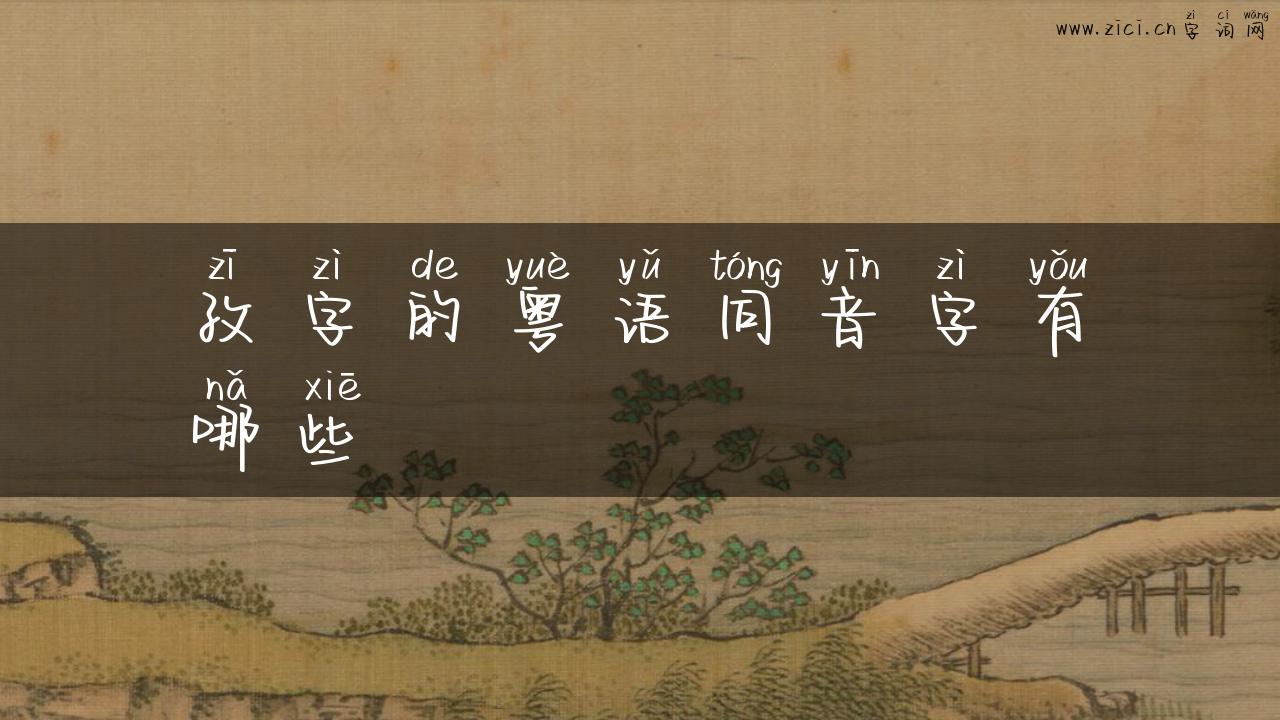 zì cí wǎng
www.zici.cn 字词网
zī zì de yuè yǔ tóng yīn zì yǒu
孜字的粤语同音字有
nǎ xiē
哪些